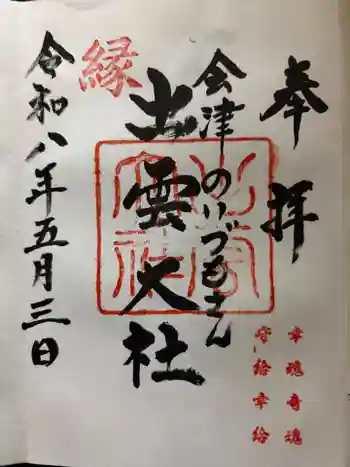 奉拝
幸魂奇魂
守給幸給
会津のいづもさん
出雲大社
縁
令和八年五月三日